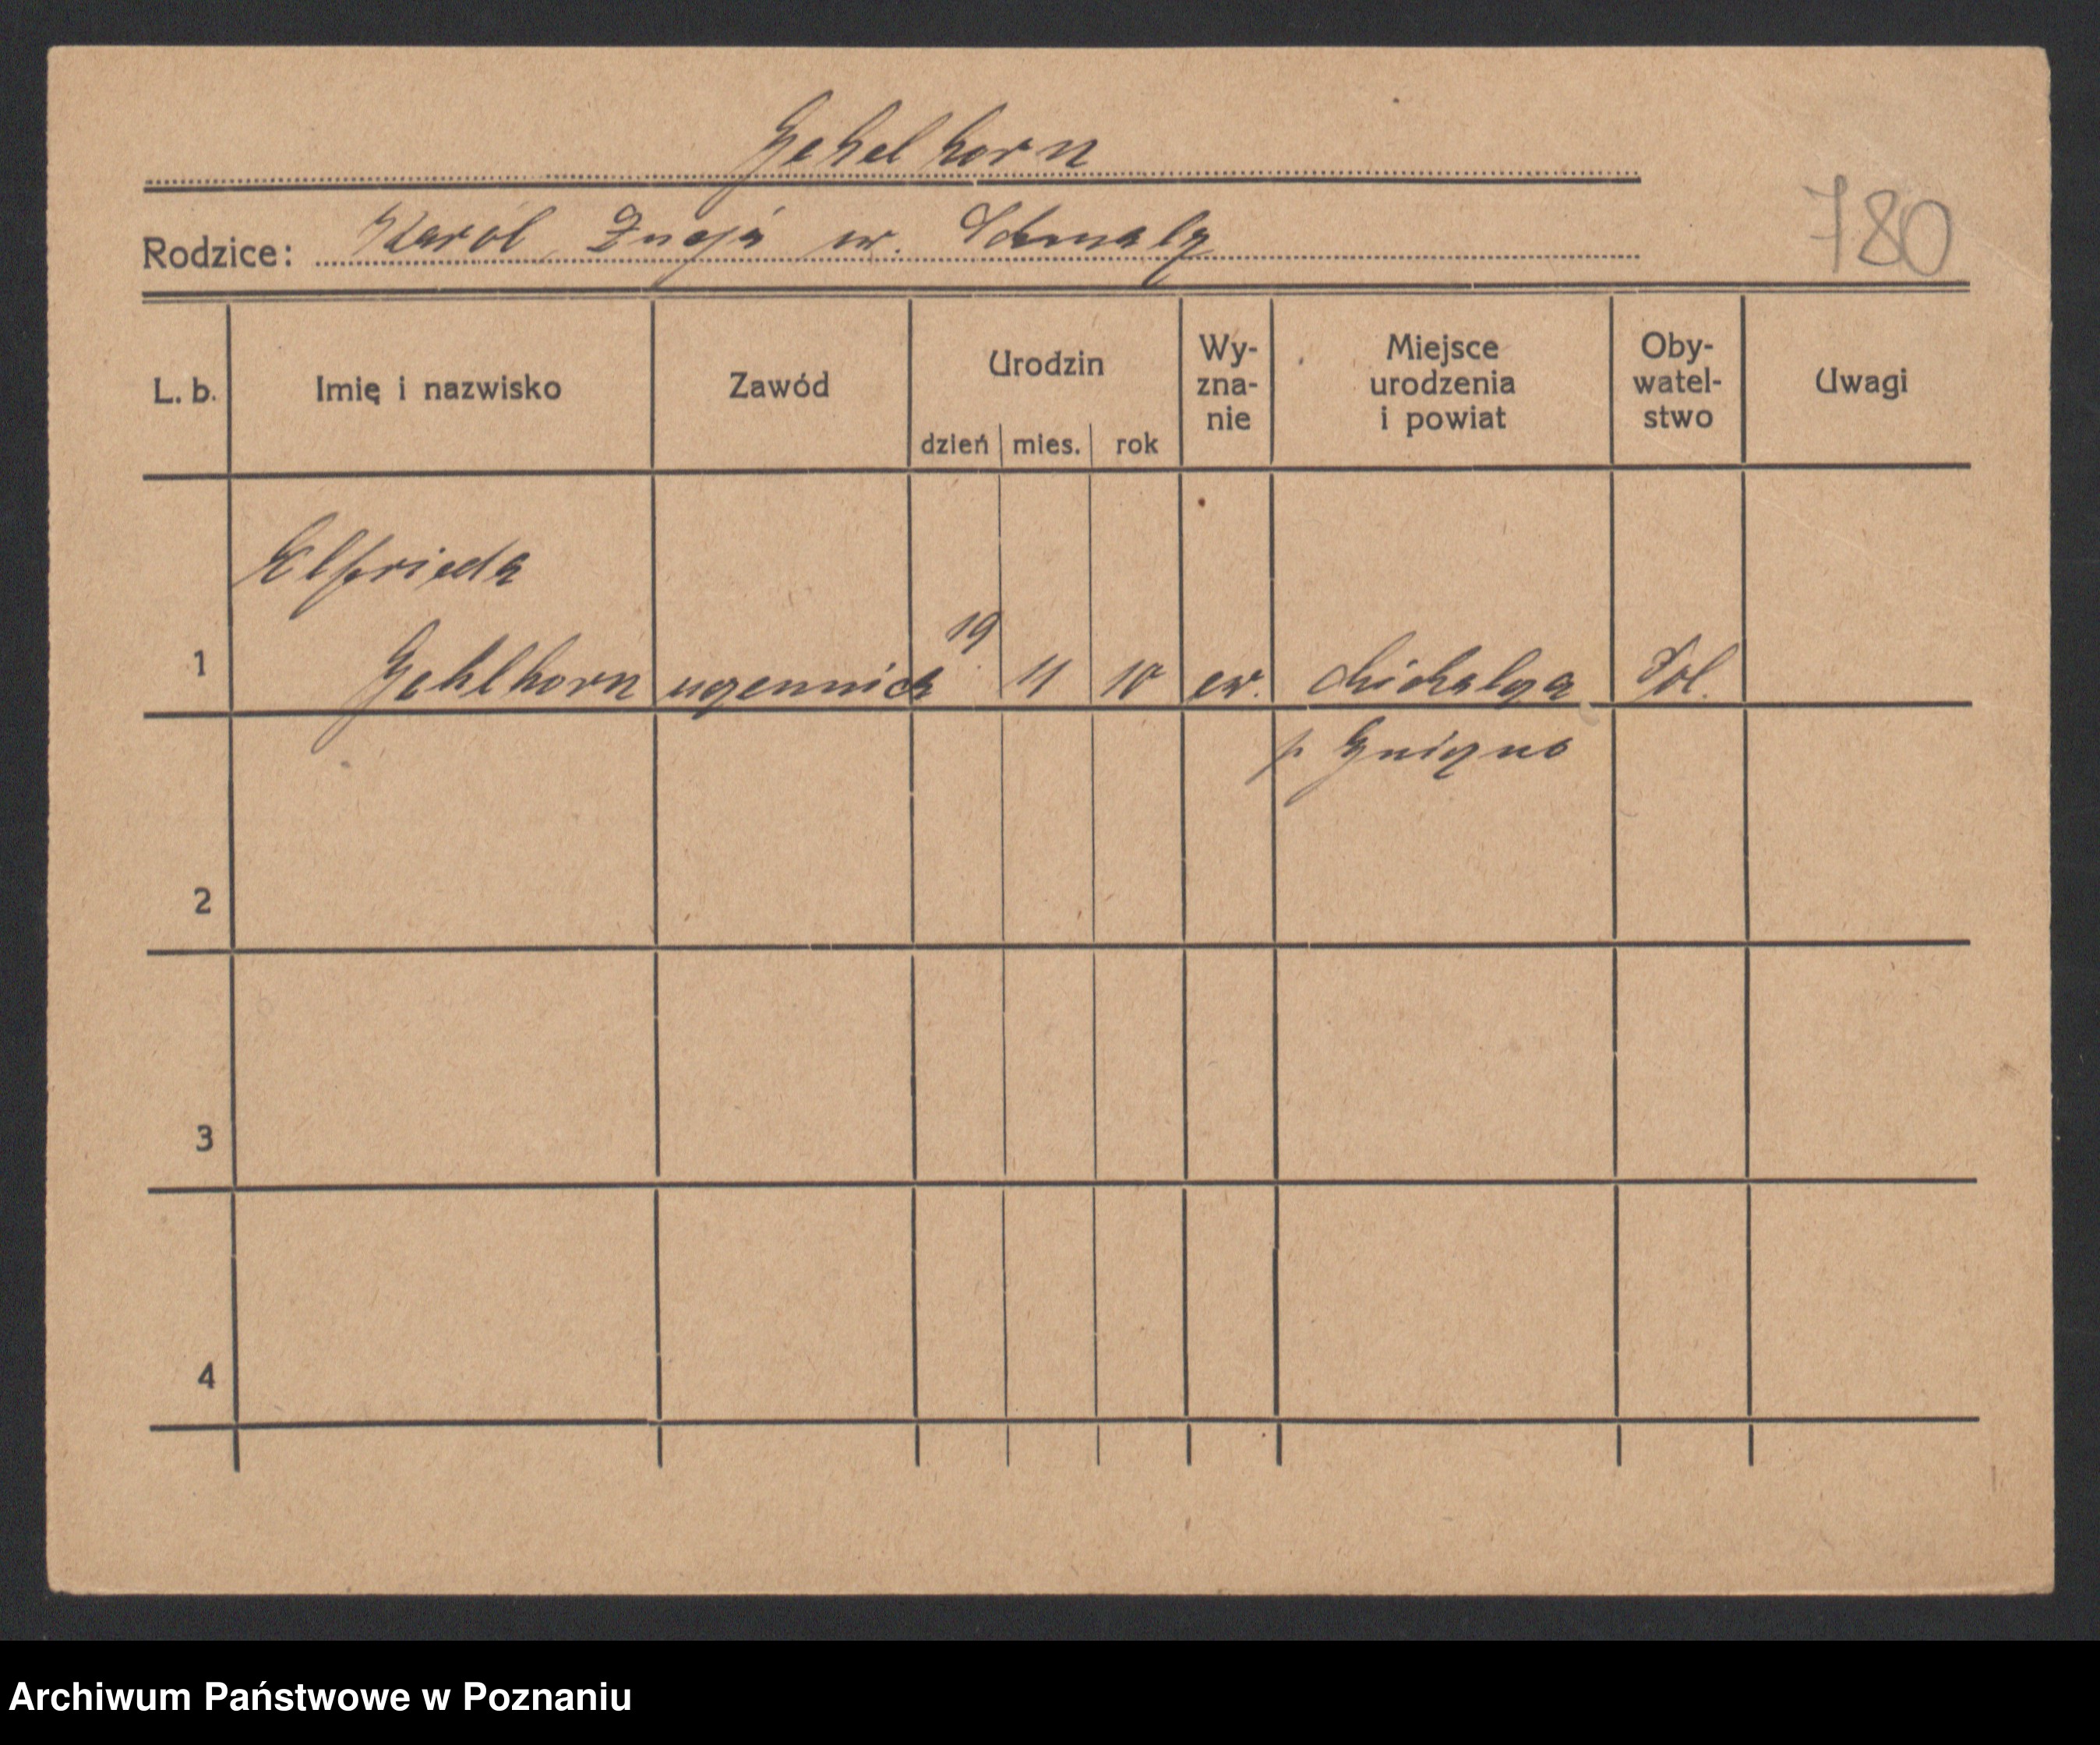 Gehelhorn
Rodzice: Karol Zusja ur. Schmalz
780
L. b.
Imię i nazwisko
Zawód
Urodzin
dzień mies. rok
Wy-
zna-
nie
Miejsce
urodzenia
i powiat
Oby-
watel-
stwo
Uwagi
Elfrieda
1 Gehlhorn uczennica 19 11 10 ew. Michalcza Pol.
p. Gniezno
2
3
4
Archiwum Państwowe w Poznaniu